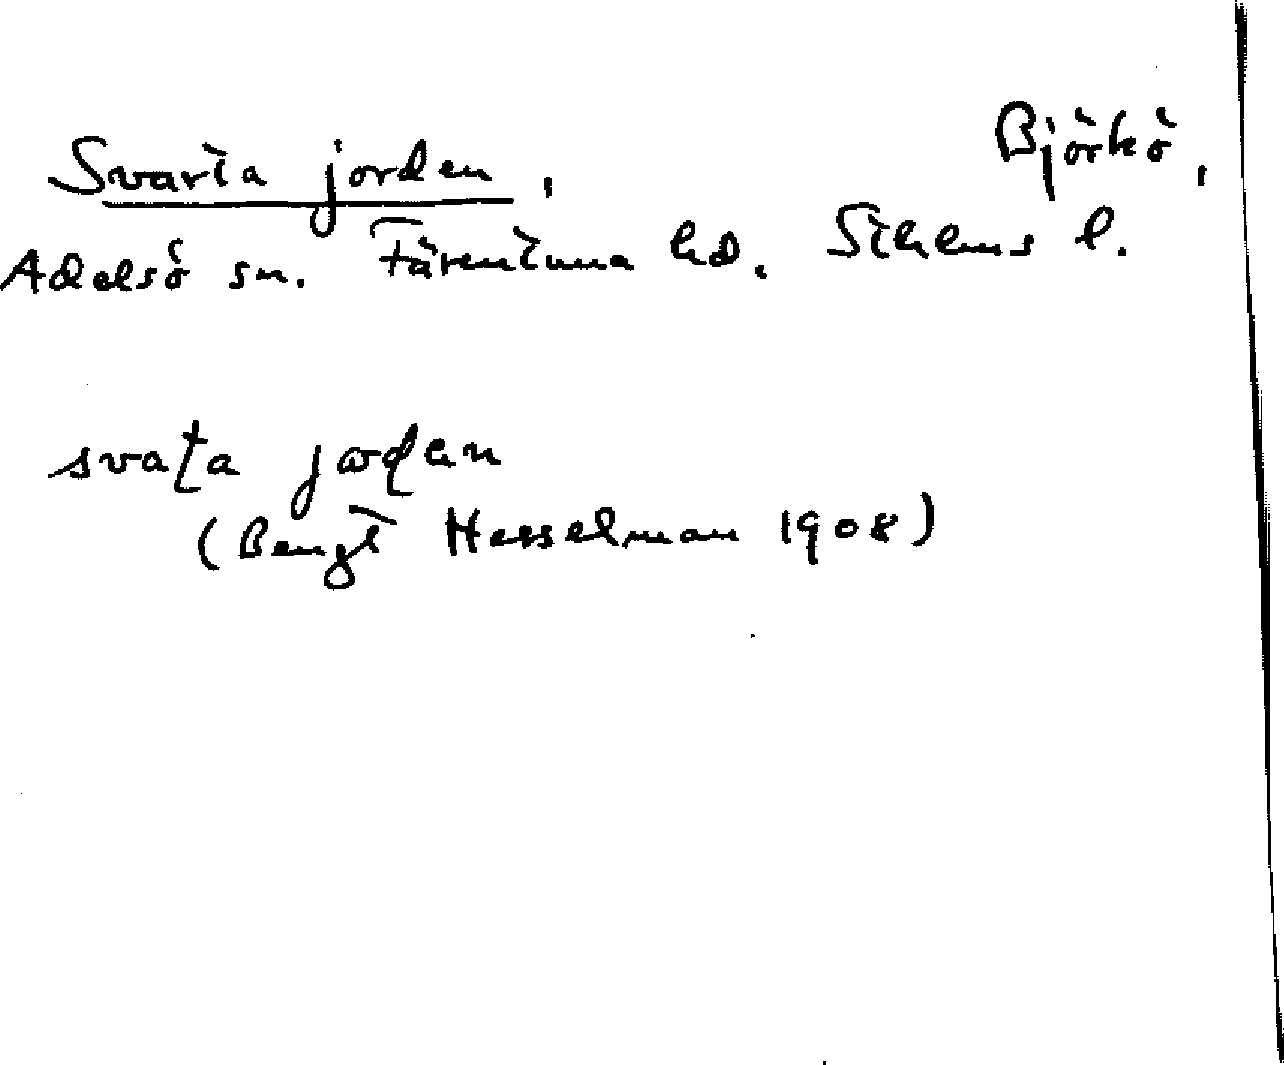 Svarta jorden, Björkö,
Adelsö sn. Färentuna hd. Sthlms l.
svaʈa joɖen
(Bengt Hesselman 1908)